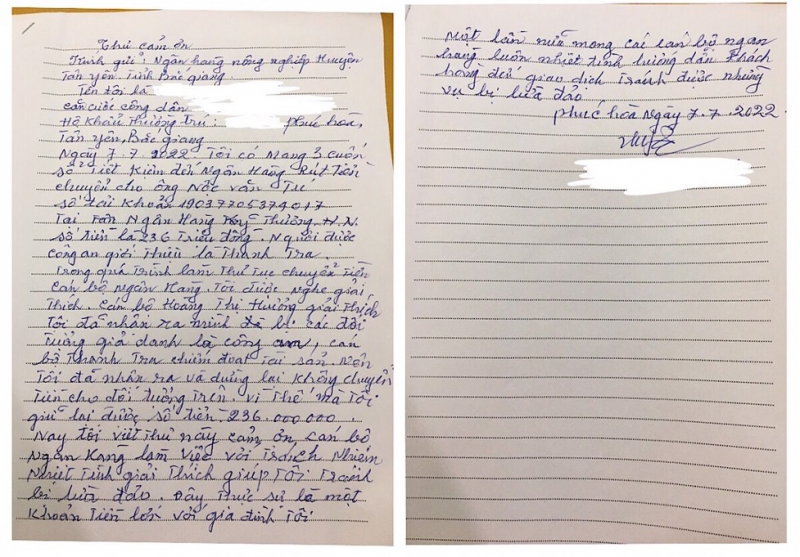 Thư cảm ơn
Kính gửi: Ngân hàng nông nghiệp Huyện
Tân yên Tỉnh Bắc giang
Tên tôi là
căn cước công dân
Hộ khẩu thường trú: phúc hoà,
Tân yên, Bắc giang
Ngày 7.7.2022 Tôi có Mang 3 cuốn
sổ Tiết Kiệm đến Ngân Hàng Rút Tiền
chuyển cho ông Nộc văn Tú
số tài Khoản 19037705374017
Tại Ngân Hàng Kỹ Thương. H.N.
số tiền là 236 Triệu đồng. Người được
công an giới thiệu là Thanh Tra.
Trong quá Trình làm Thủ Tục chuyển Tiền
cán bộ Ngân Hàng. Tôi được nghe giải
Thích. Cán bộ Hoàng Thị Hường giải Thích
Tôi đã nhận ra mình bị các đối
Tượng giả danh là công an, cán
bộ Thanh Tra chiếm đoạt Tài sản. Nên
Tôi đã nhận ra và dừng lại không chuyển
Tiền cho đối tượng Trên. Vì Thế mà Tôi
giữ lại được số tiền. 236.000000.
Nay tôi viết Thư này cảm ơn, cán bộ
Ngân Hàng làm việc với Trách Nhiệm
Nhiệt Tình giải Thích giúp Tôi Tránh
bị lừa đảo. Đây Thực sự là một
Khoản Tiền lớn với gia đình Tôi
Một lần nữa mong các cán bộ ngân
hàng luôn nhiệt tình hướng dẫn Khách
hàng đến giao dịch Tránh được những
vụ bị lừa đảo.
phúc hòa Ngày 7.7.2022